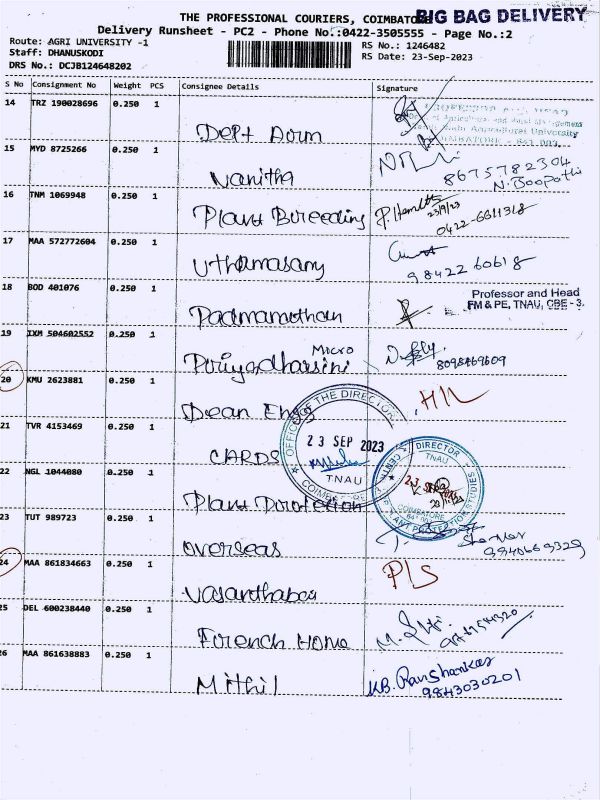 THE PROFESSIONAL COURIERS, COIMBATORE
BIG BAG DELIVERY
Delivery Runsheet - PC2 - Phone No.:0422-3505555 - Page No.:2
Route: AGRI UNIVERSITY -1
RS No.: 1246482
Staff: DHANUSKODI
RS Date: 23-Sep-2023
DRS No.: DCJB124648202
S No Consignment No Weight PCS Consignee Details Signature
14 TRZ 190028696 0.250 1
Dept Aorm
COIMBATORE - 641 003
15 MYD 8725266 0.250 1
Vanitha
8675782304
N. Boopathi
16 TNM 1069948 0.250 1
Plant Bureeding
23/9/23
0422-6611318
17 MAA 572772604 0.250 1
Uthamasamy
98422 60618
18 BOD 401076 0.250 1
Padmanathan
Professor and Head
FM & PE, TNAU, CBE - 3.
19 IXM 504602552 0.250 1
Puriyadharsini Micro
8098469609
20 KMU 2623881 0.250 1
Dean Engg
HM
OFFICE OF THE DIRECTOR
23 SEP 2023
TNAU
21 TVR 4153469 0.250 1
CARDS
DIRECTOR
TNAU
COIMBATORE
PLANT PROTECTION STUDIES
22 NGL 1044080 0.250 1
Plant Protection
23 TUT 989723 0.250 1
Overseas
9940669329
24 MAA 861834663 0.250 1
Vasanthabas
P/S
25 DEL 600238440 0.250 1
Forench Home
26 MAA 861638883 0.250 1
Mithil
KB. Ravishankar
9843030201